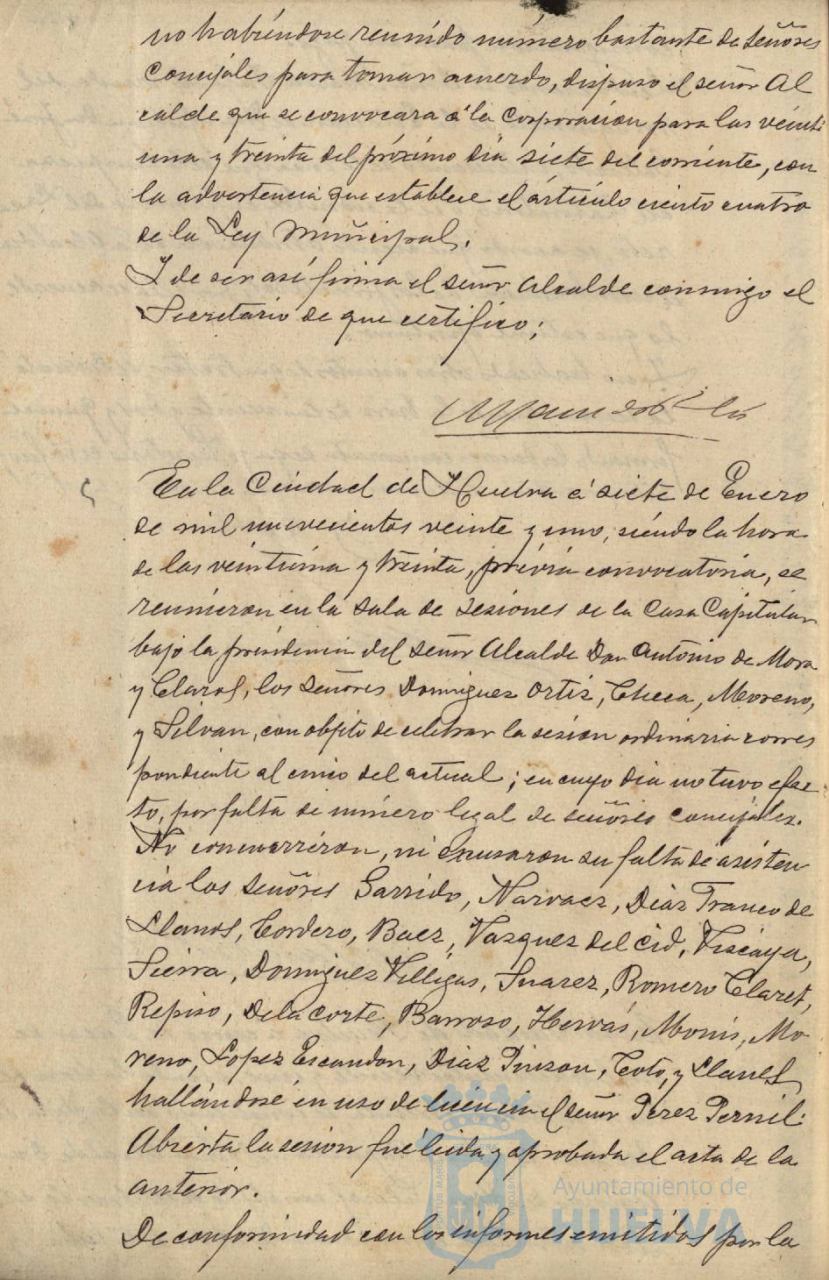 no habiéndose reunido número bastante de Señores
Concejales para tomar acuerdo, dispuso el señor Al
calde que se convocara á la Corporación para las veinti
una y treinta del próximo dia siete del corriente, con
la advertencia que establece el artículo ciento cuatro
de la Ley Municipal.
Y de ser así firma el señor Alcalde conmigo el
Secretario de que certifico;
En la Ciudad de Huelva á siete de Enero
de mil novecientos veinte y uno, siendo la hora
de las veintiuna y treinta, prévia convocatoria, se
reunieron en la Sala de Sesiones de la Casa Capitular
bajo la presidencia del señor Alcalde Don Antonio de Mora
y Claros, los Señores Dominguez Ortiz, Checa, Moreno,
y Silvan, con objeto de celebrar la sesion ordinaria corres
pondiente al cinco del actual; en cuyo dia no tuvo efec
to, por falta de número legal de señores concejales.
No concurrieron, ni excusaron su falta de asisten
cia los Señores Garrido, Narvaez, Diaz Franco de
Llanos, Cordero, Baez, Vazquez del Cid, Viscaya,
Sierra, Dominguez Villegas, Suarez, Romero Claret,
Repiso, De la Corte, Barroso, Hervás, Monis, Mo
reno, Lopez Escandon, Diaz Pinzon, Coto, y Llanes
hallándose en uso de licencia el señor Perez Pernil.
Abierta la sesion fué leida y aprobada el acta de la
anterior.
De conformidad con los informes emitidos por la
Ayuntamiento de
HUELVA